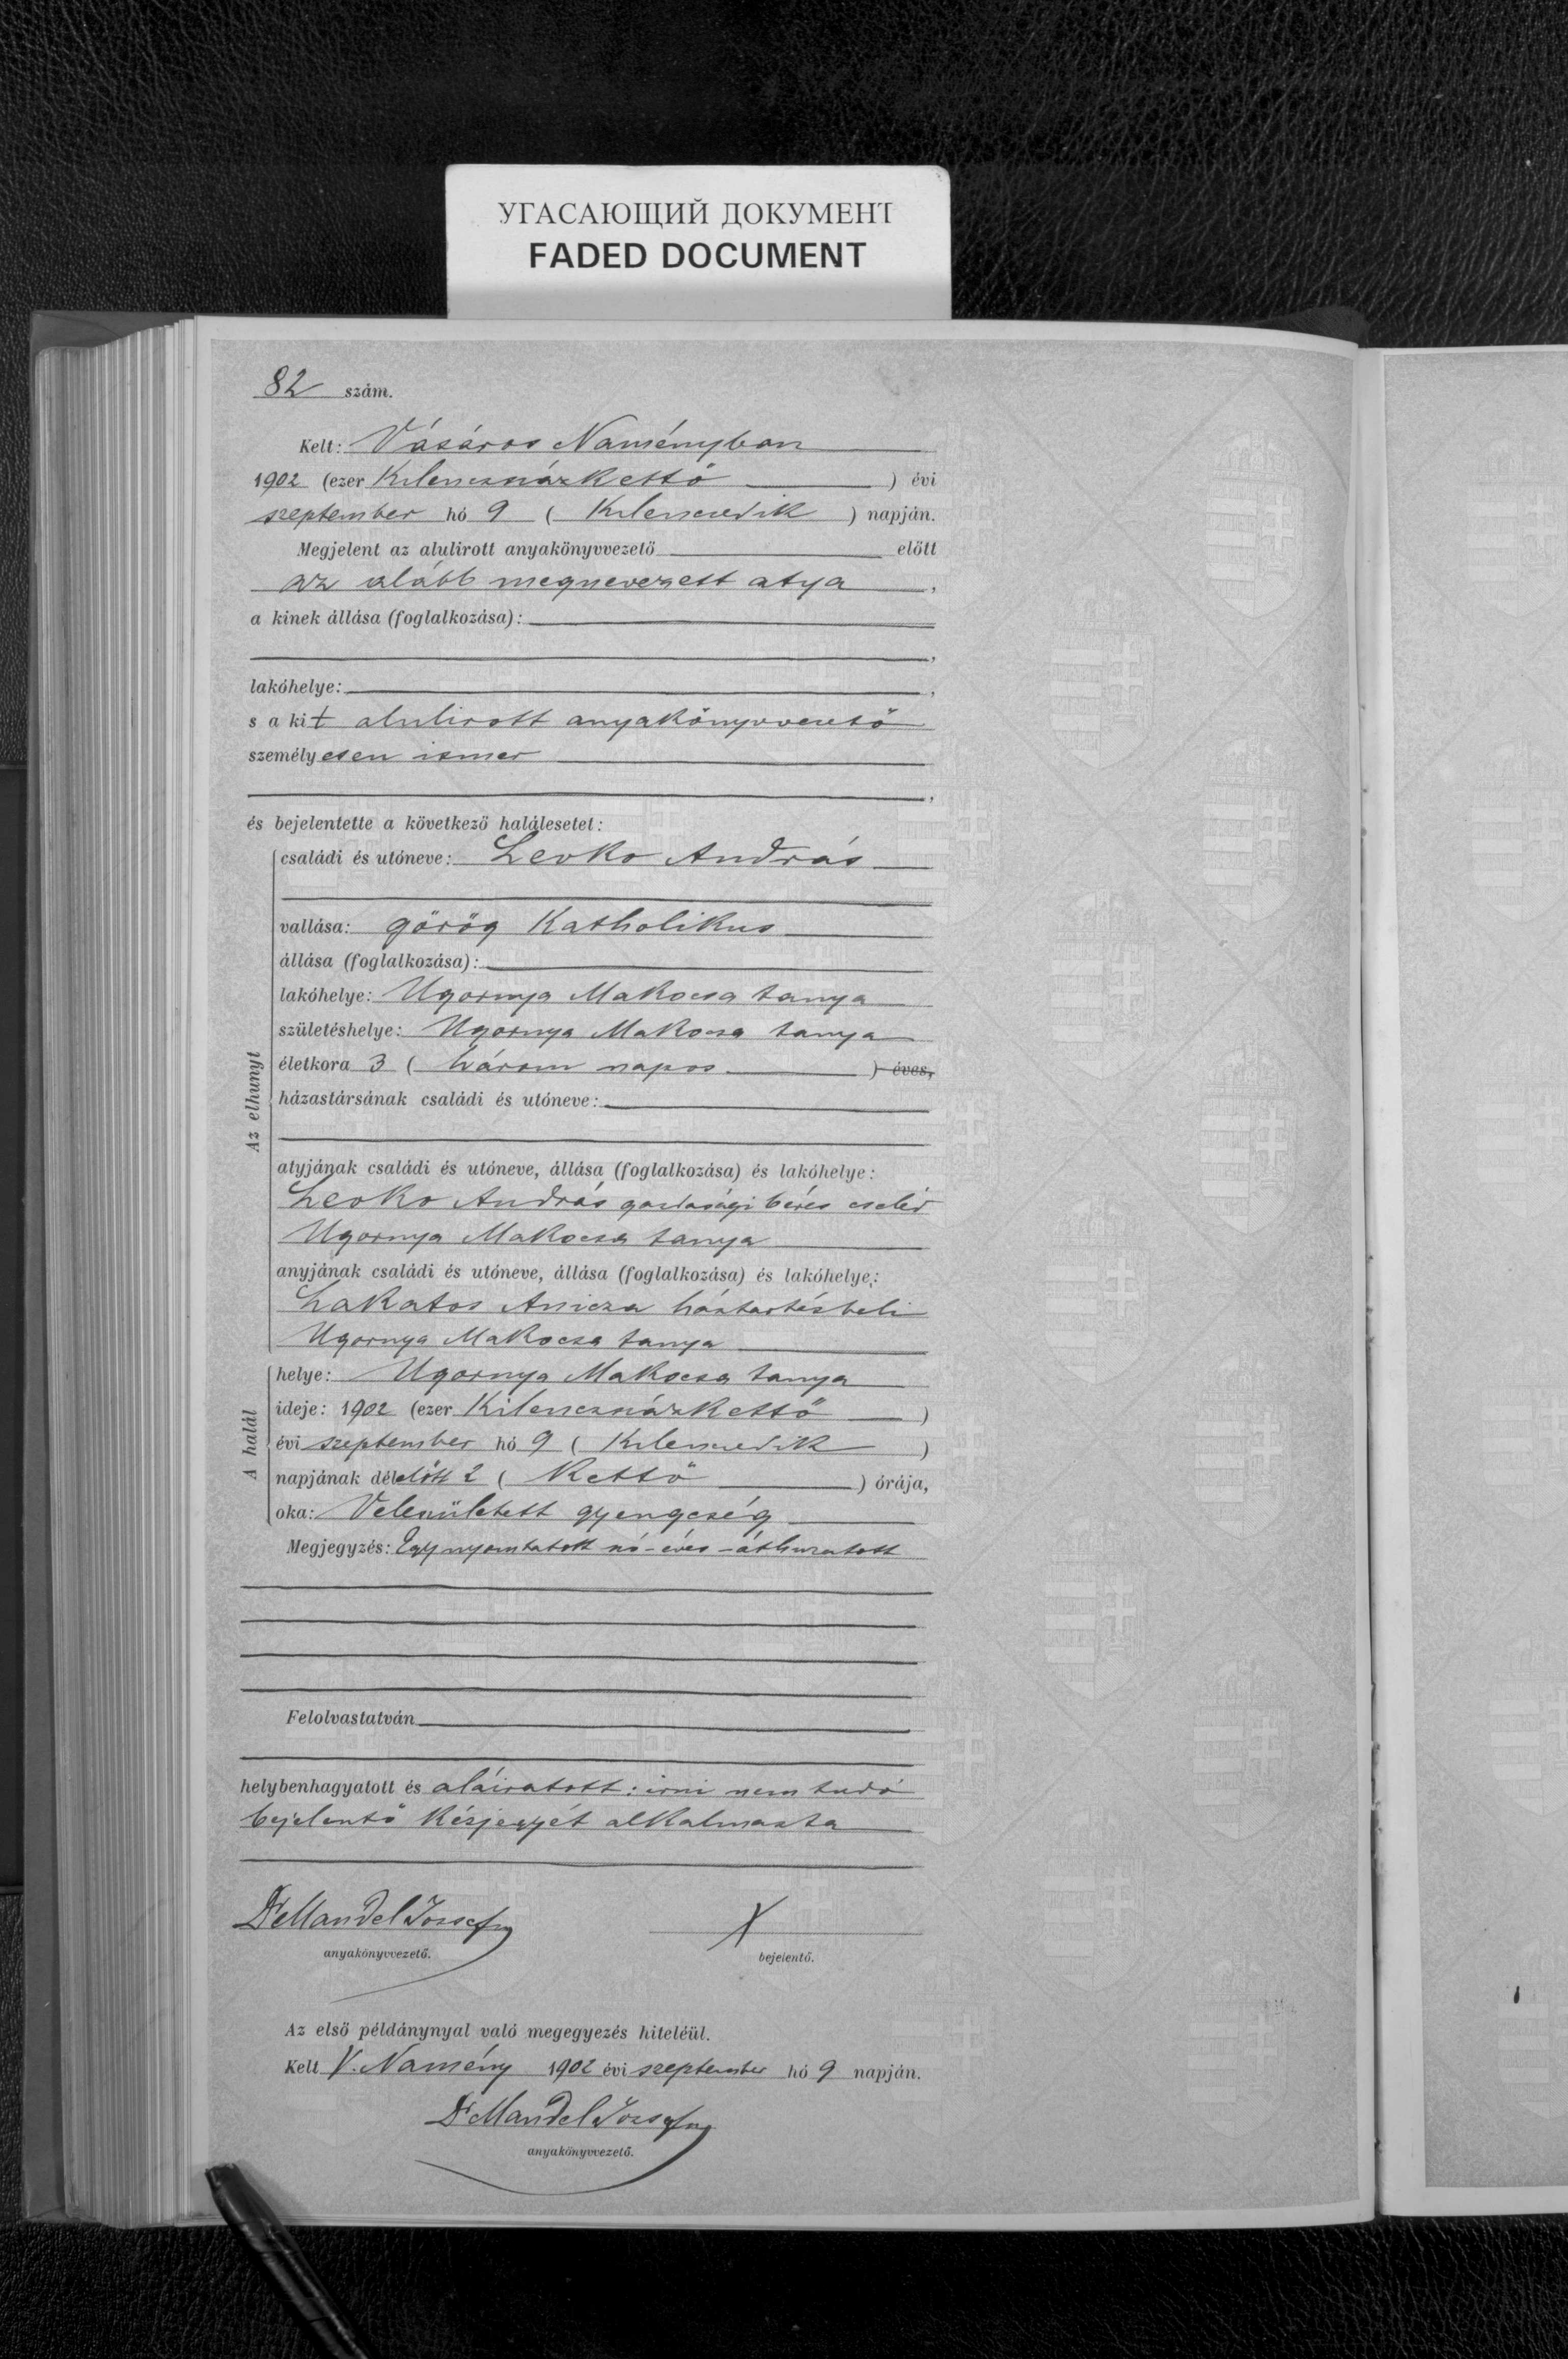 УГАСАЮЩИЙ ДОКУМЕНТ
FADED DOCUMENT
82 szám.
Kelt: Vásáros Naményban
1902 (ezer kilenczszázkettő ) évi
szeptember hó 9 ( kilenczedik ) napján.
Megjelent az alulirott anyakönyvvezető előtt
az alább megnevezett atya ,
a kinek állása (foglalkozása):
,
lakóhelye: ,
s a kit alulirott anyakönyvvezető
személyesen ismer
,
és bejelentette a következő halálesetet:
Az elhunyt
családi és utóneve: Levko András
vallása: görög katholikus
állása (foglalkozása):
lakóhelye: Ugornya Makocsa tanya
születéshelye: Ugornya Makocsa tanya
életkora 3 ( három napos ) éves,
házastársának családi és utóneve:
atyjának családi és utóneve, állása (foglalkozása) és lakóhelye:
Levko András gazdasági béres cseléd
Ugornya Makocsa tanya
anyjának családi és utóneve, állása (foglalkozása) és lakóhelye:
Lakatos Anicza háztartásbeli
Ugornya Makocsa tanya
A halál
helye: Ugornya Makocsa tanya
ideje: 1902 (ezer kilenczszázkettő )
évi szeptember hó 9 ( kilenczedik )
napjának délelőtt 2 ( kettő ) órája,
oka: Veleszületett gyengeség
Megjegyzés: Egy nyomtatott szó - éves - áthuzatott
Felolvastatván
helybenhagyatott és aláiratott: irni nem tudó
bejelentő kézjegyét alkalmazta
Dr Mandel József X
anyakönyvvezető. bejelentő.
Az első példánynyal való megegyezés hiteléül.
Kelt V. Namény 1902 évi szeptember hó 9 napján.
Dr Mandel József
anyakönyvvezető.